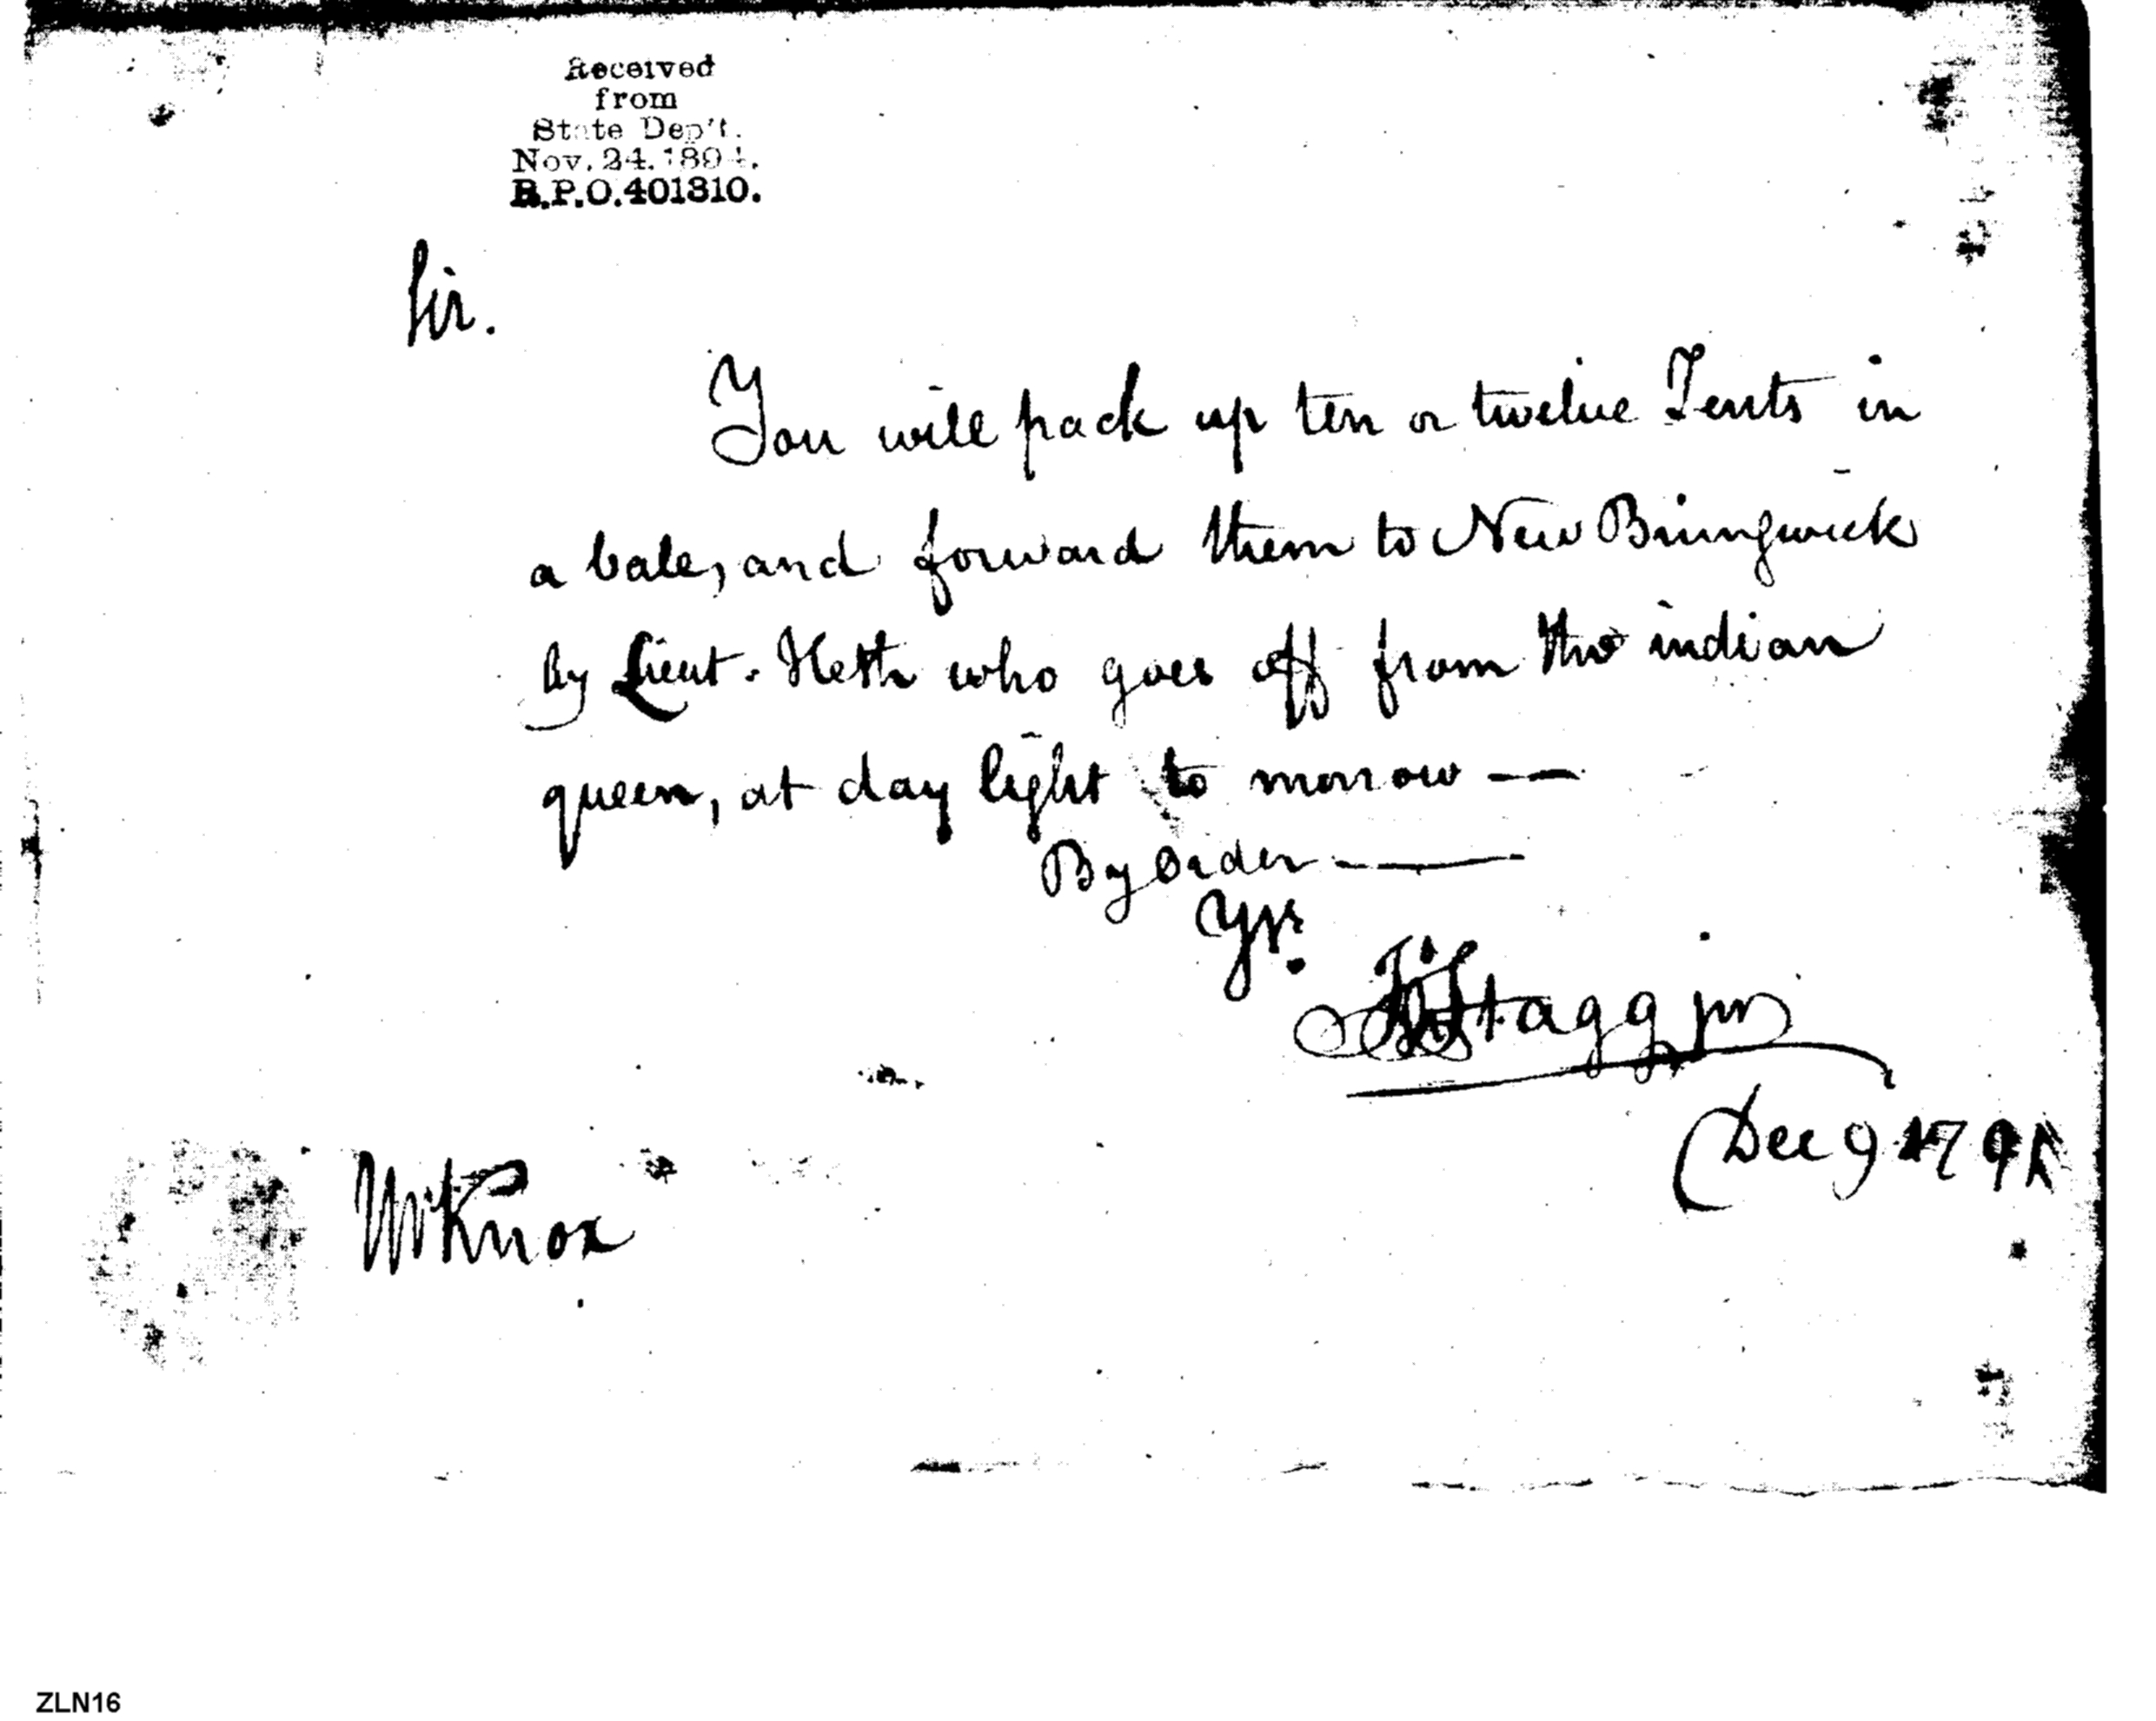 Received
from
State Dep't.
Nov. 24. 1894.
R.P.O. 401310.
Sir.
You will pack up ten or twelve Tents in
a bale, and forward them to New Brungwick
by Lieut. Heth who goes off from the indian
queen, at day light to morrow —
By order —
Yrs.
Stagg jnr
Dec 9 179
Mr. Knox
ZLN16